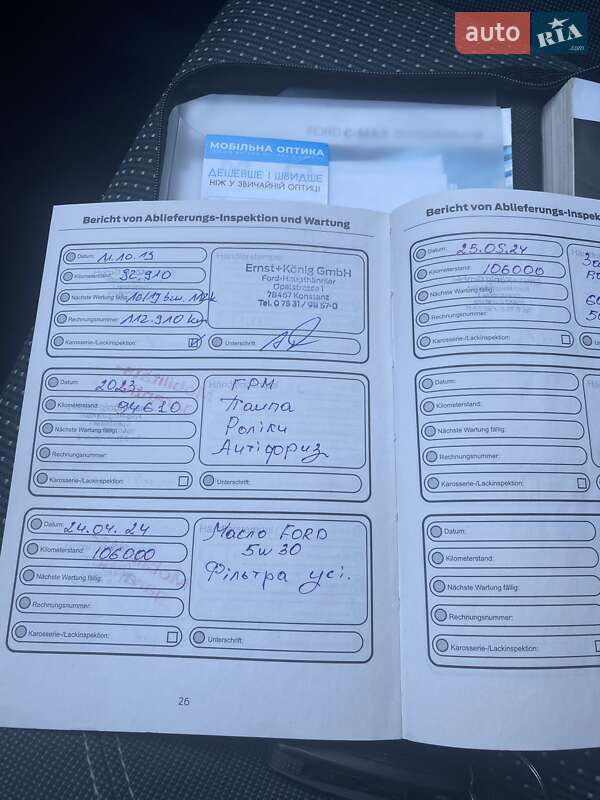 auto RIA .com
МОБІЛЬНА ОПТИКА
ДЕШЕВШЕ І ШВИДШЕ
НІЖ У ЗВИЧАЙНІЙ ОПТИЦІ
Bericht von Ablieferungs-Inspektion und Wartung
Datum: 11.10.19
Kilometerstand: 92.910
Nächste Wartung fällig: 10/19 bzw.
Rechnungsnummer: 112.910 km
Karosserie-/Lackinspektion:
Ernst+König GmbH
Ford-Haupthändler
Opelstrasse 1
78467 Konstanz
Tel. 0 75 31 / 98 57-0
Unterschrift:
Datum: 2023
Kilometerstand: 94620
Nächste Wartung fällig:
Rechnungsnummer:
Karosserie-/Lackinspektion:
ГРМ
Помпа
Ролики
Антифриз
Unterschrift:
Datum: 24.04.24
Kilometerstand: 106000
Nächste Wartung fällig:
Rechnungsnummer:
Karosserie-/Lackinspektion:
Масло FORD
5w30
Фільтра усі.
Unterschrift:
26
Bericht von Ablieferungs-Inspek
Datum: 25.05.24
Kilometerstand: 106000
Nächste Wartung fällig:
Rechnungsnummer:
Karosserie-/Lackinspektion:
Datum:
Kilometerstand:
Nächste Wartung fällig:
Rechnungsnummer:
Karosserie-/Lackinspektion:
Datum:
Kilometerstand:
Nächste Wartung fällig:
Rechnungsnummer:
Karosserie-/Lackinspektion: